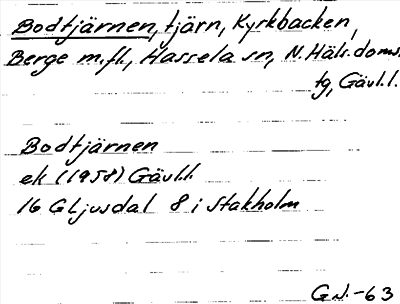 Bodtjärnen, tjärn, Kyrkbacken,
Berge m.fl., Hassela sn, N. Häls. doms.
tg, Gävl. l.
Bodtjärnen
ek (1958) Gävl.l.
16 G Ljusdal 8 i Stakholm
G.N.-63